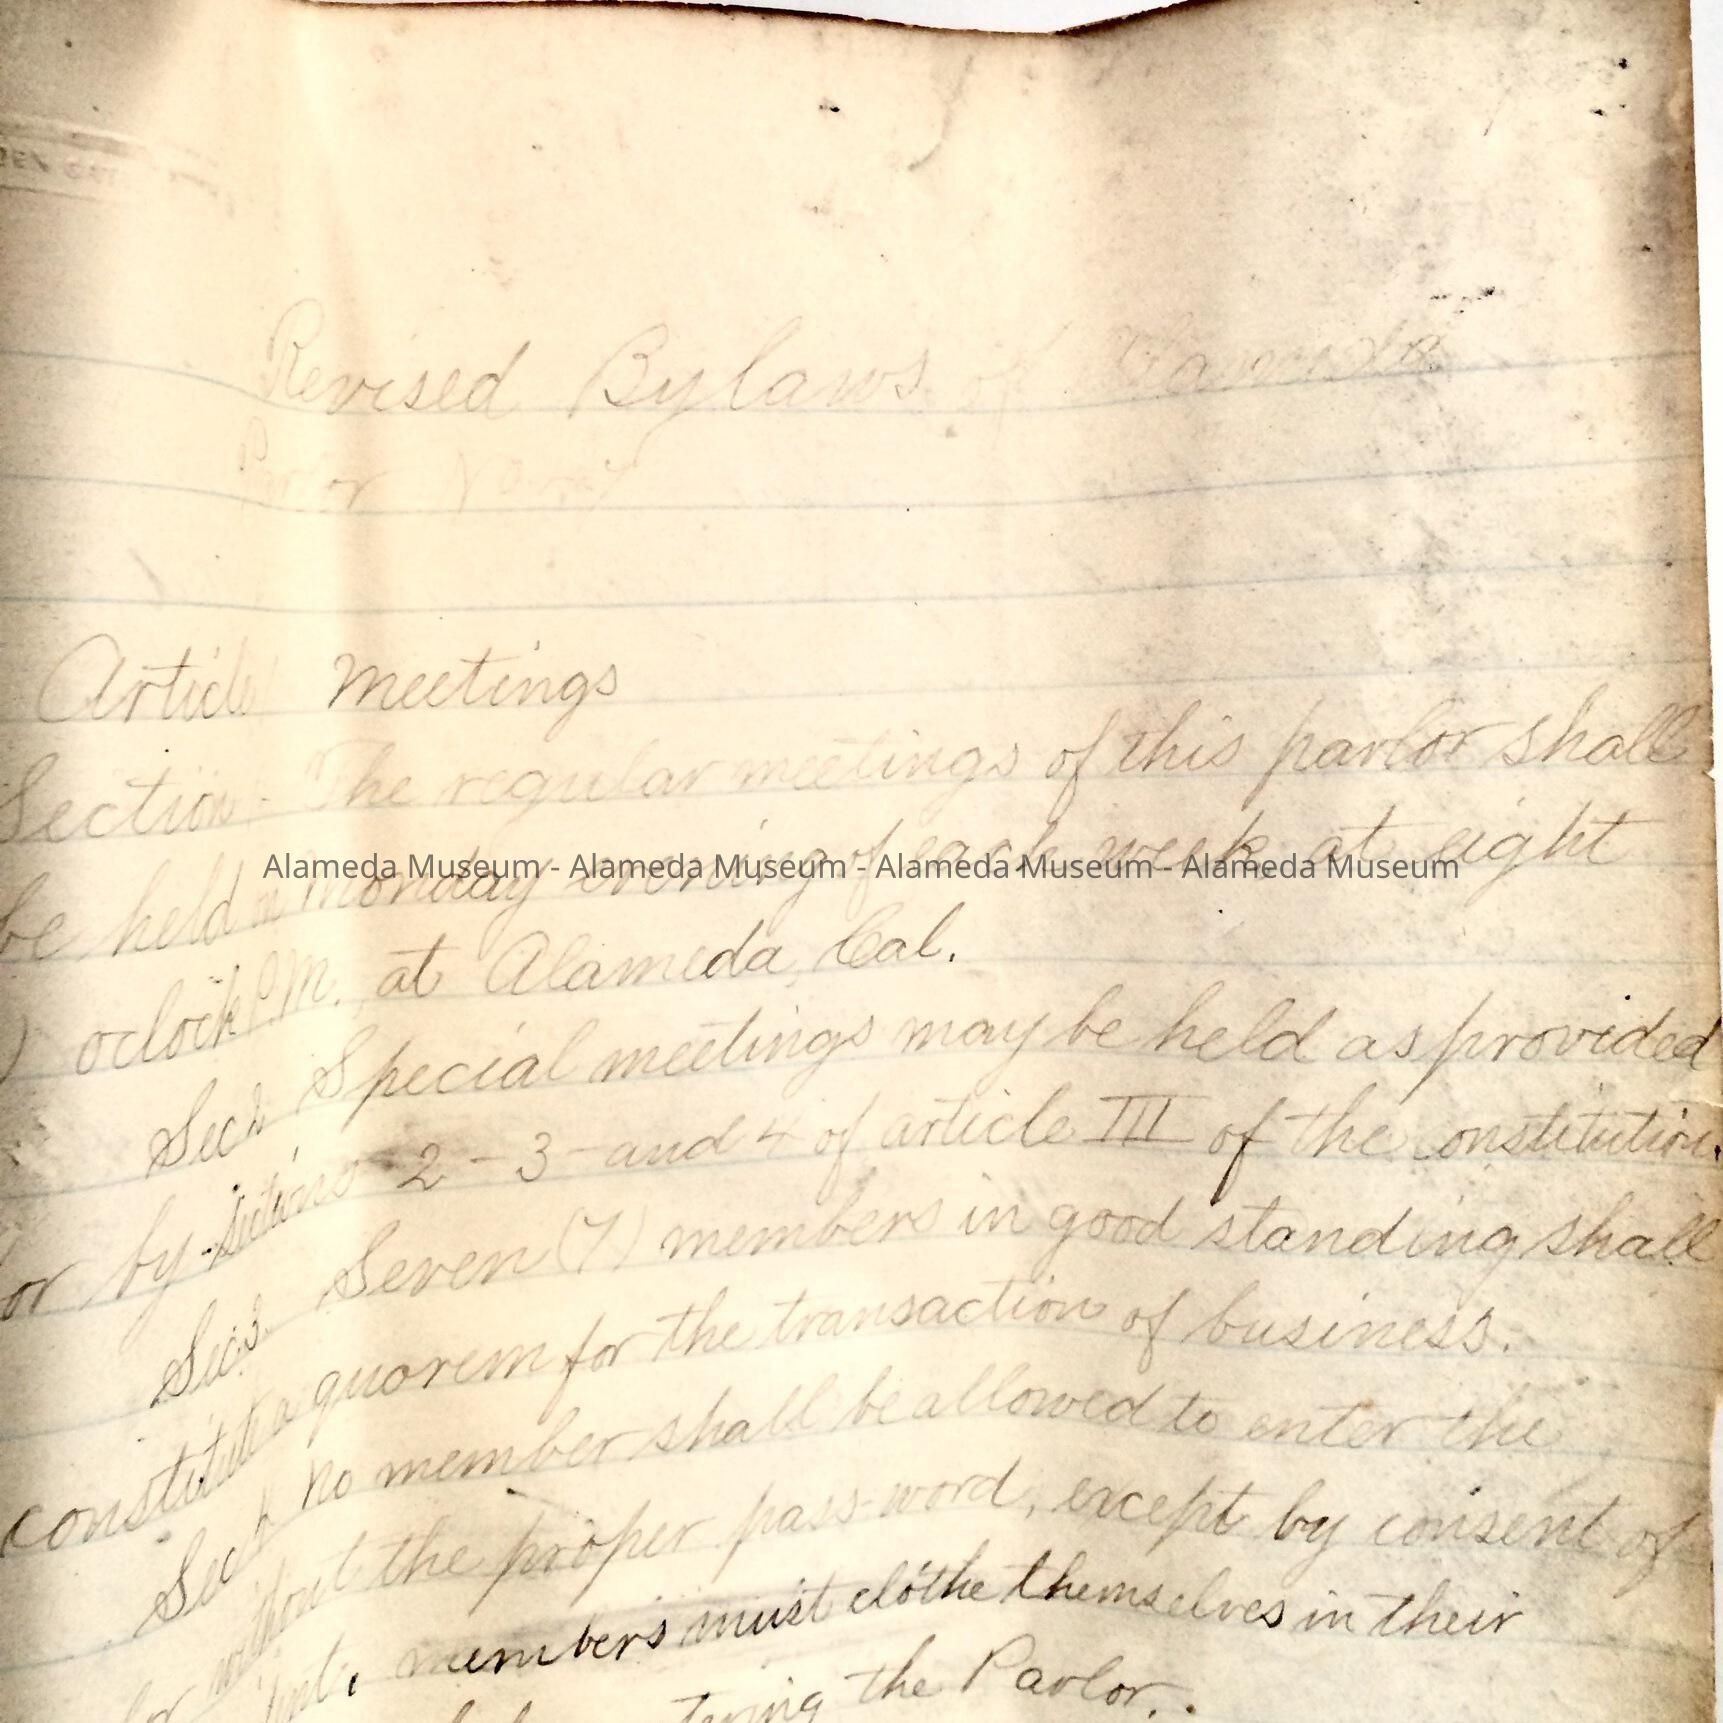 Revised Bylaws of Alameda
Parlor No. 47
Article Meetings
Section The regular meetings of this parlor shall
be held on Monday evening of each week at eight
Alameda Museum - Alameda Museum - Alameda Museum - Alameda Museum
) oclock P.M. at Alameda, Cal.
Sec 2. Special meetings may be held as provided
or by sections 2-3-and 4 of article III of the constitution.
Sec 3. Seven (7) members in good standing shall
constitute a quorem for the transaction of business.
Sec 4 No member shall be allowed to enter the
without the proper pass-word, except by consent of
members must clothe themselves in their
the Parlor.